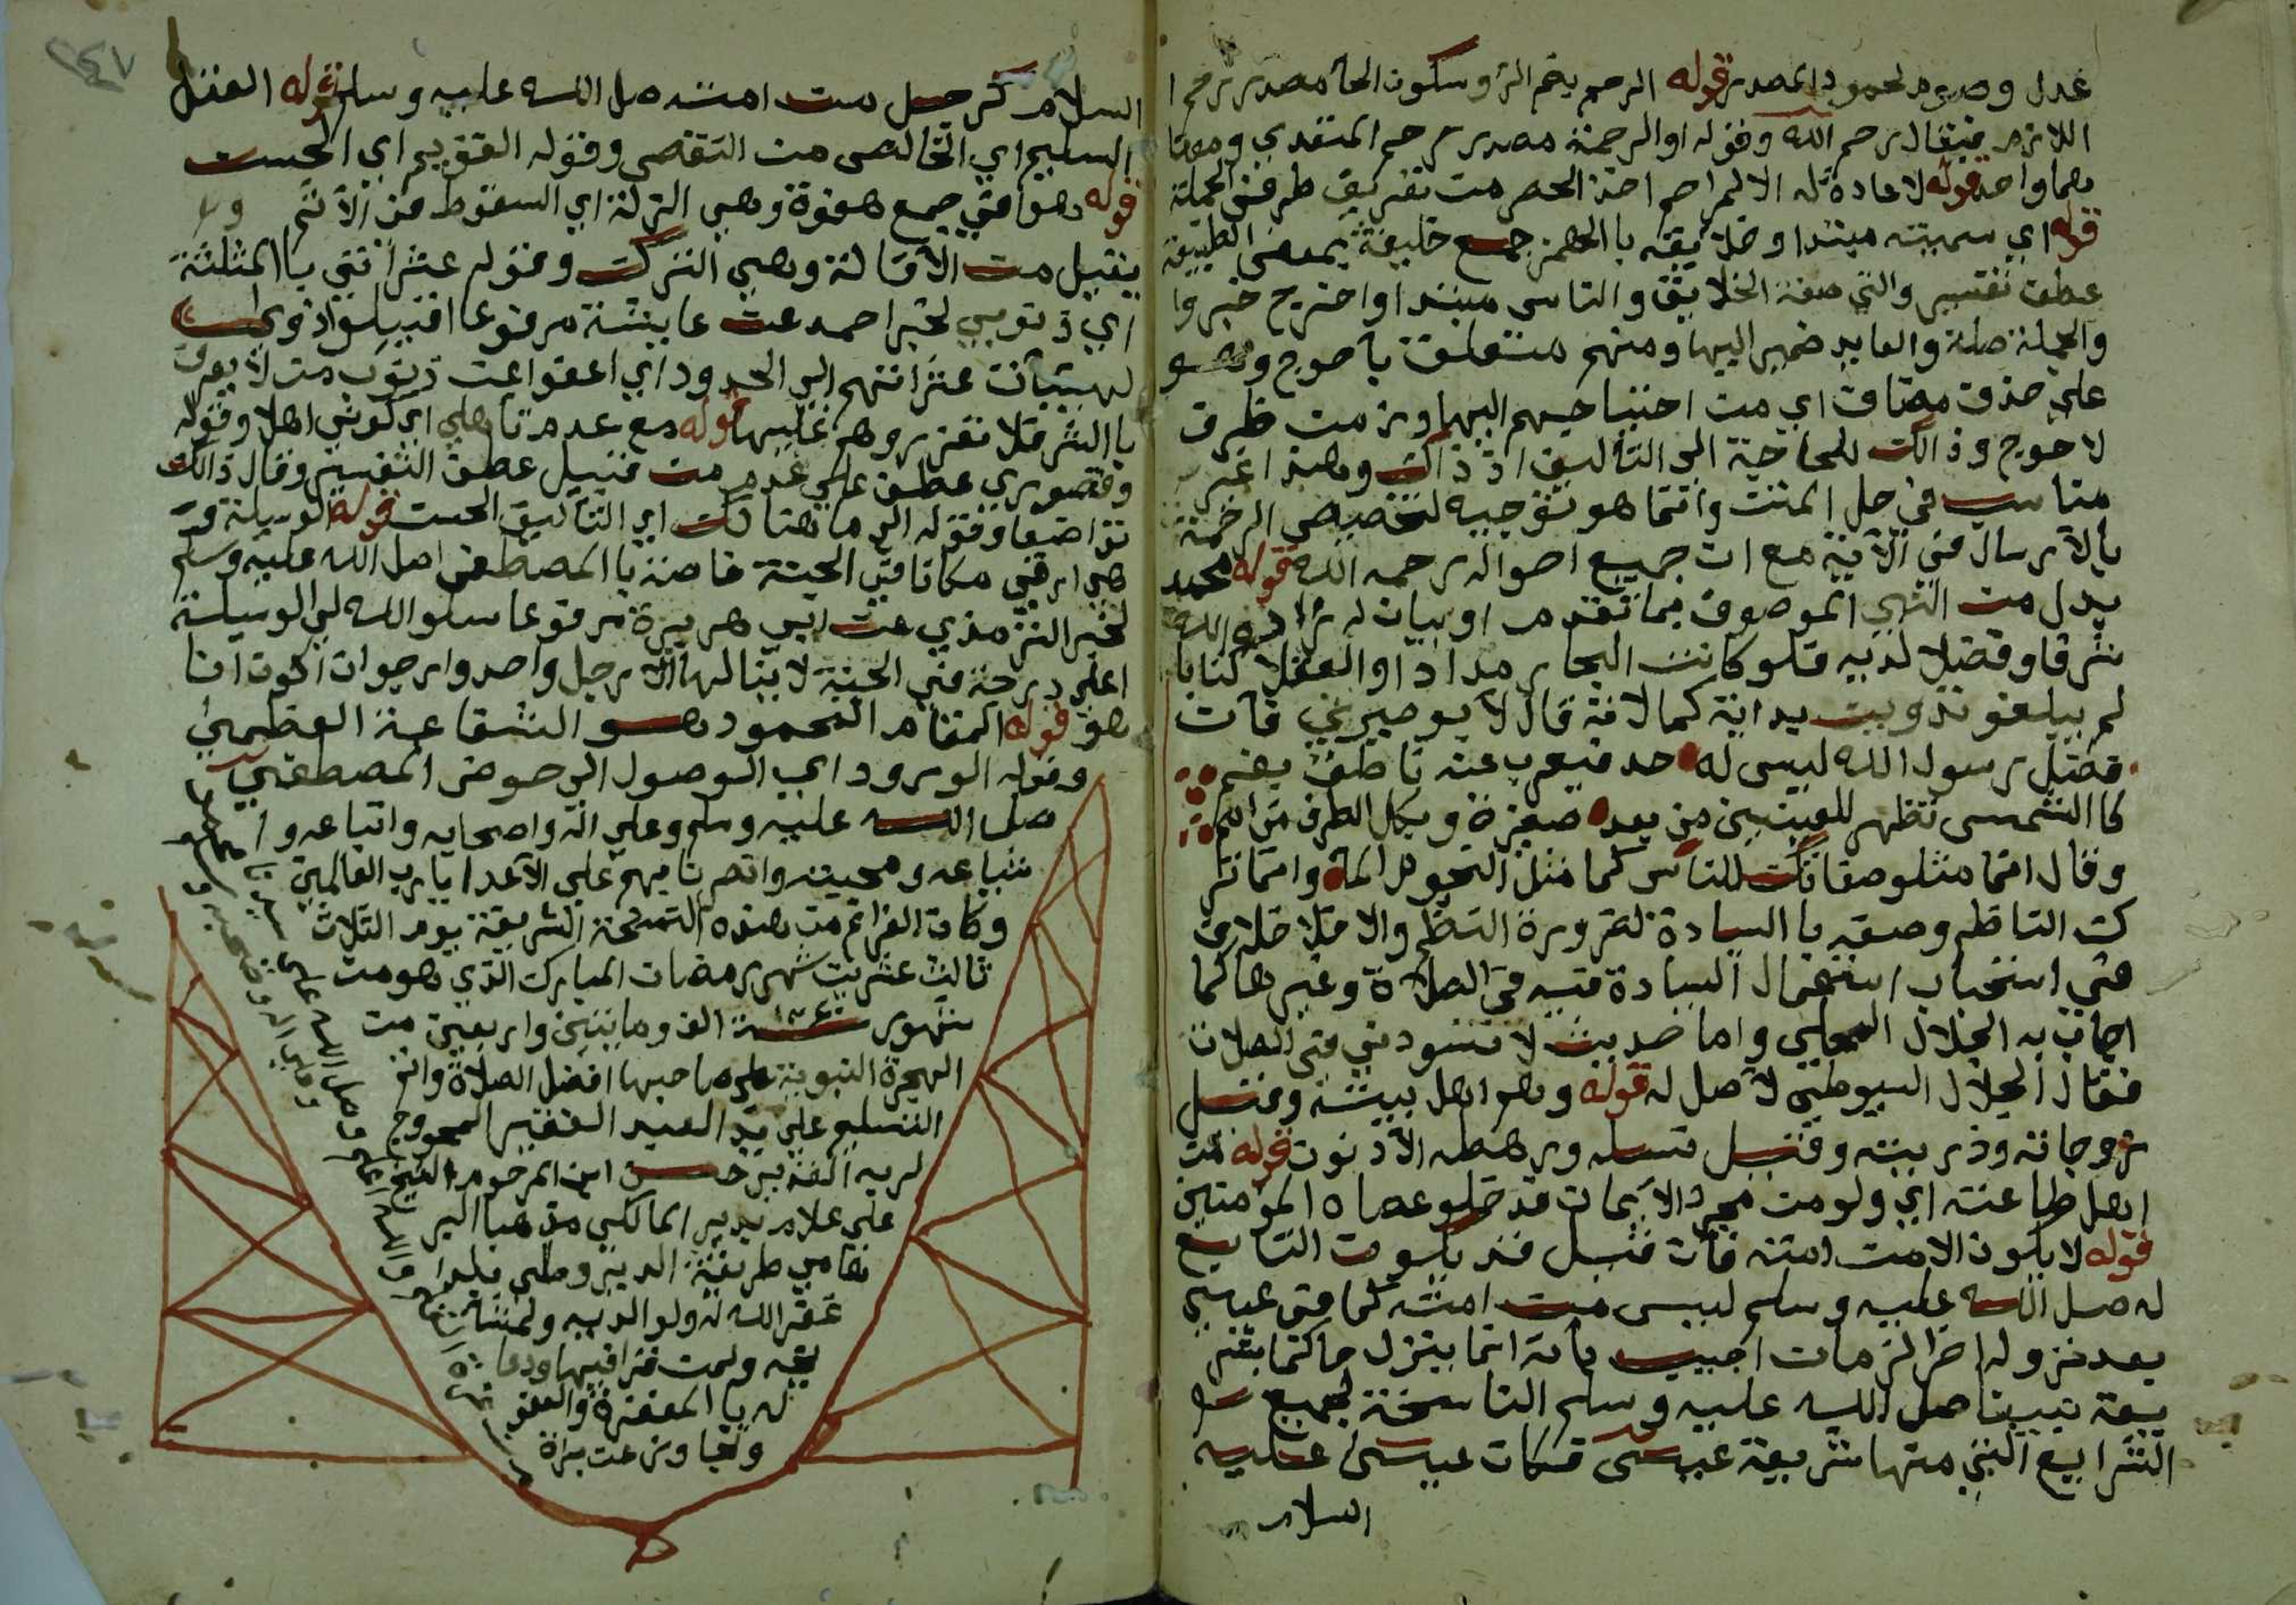 عدل وصوم لمحمود المصدر قوله الرحم بضم الرا وسكون الحا مصدر رحم ا
اللازم فيقال رحم الله وقوله او الرحمة مصدر رحم المتعدي ومعنا
هما واحد قوله لا عادة له الا لمراحم اخذ الحصر من تعريف طرفي الجملة
قوله اي سميته مبتدا وخلايقه بالهمز جمع خليقة بمعنى الطبيعة
عطف تفسير والتي صفة الخلايق والناس مبتدا واحتيج خبره
والجملة صلة والعايد ضمير اليها ومنهم متعلق باحوج وهو
على حذف مضاف اي من احتياجهم اليها وزمن ظرف
لاحوج وذالك للحاجة الى التأليف اذ ذاك وهذا غير
مناسب في حل المتن وانما هو توجيه لتخصيص الرحمة
بالارسال في الاية مع ان جميع احواله رحمه الله قوله محمد
بدل من النبي الموصوف بما تقدم او بيان له زاده الله
شرفا وفضلا لديه فلو كانت البحار مدادا والعقلا كتابا
لم يبلغو تدوين بداية كمالاته قال الابوصيري فان
فضل رسول الله ليس له حد فيعرب عنه ناطق بفم
كالشمس تظهر للعينين من بعد صغيرة وتكل الطرف من امم
وقال انما مثلو صفاتك للناس كما مثل النجوم الماء وانما تر
ك الناظم وصفه بالسيادة لضرورة النظم والا فلا خلاف
في استحباب استعمال السيادة فيه في الصلاة وغيرها كما
اجاب به الجلال المحلي واما حديث لا تسودني في الصلاة
فقال الجلال السيوطي لا اصل له قوله وهو اهل بيته وقيل
زوجاته وذريته وقيل نسله ورهطه الادنون قوله من
اهل طاعته اي ولو من مجرد الايمان فدخلو عصاة المومنين
قوله لا يكون الا من امته فان قيل قد يكون التابع
له صلى الله عليه وسلم ليس من امته كما في عيسى
بعد نزوله اخر الزمان اجيب بانه انما ينزل حاكما بشر
يعة نبينا صلى الله عليه وسلم الناسخة لجميع
الشرايع التي منها شريعة عيسى فكان عيسى عليه
السلام
٢٤٧
السلام كرجل من امته صلى الله عليه وسلم قوله العقل
السليم اي الخالص من النقص وقوله القويم اي الحسن
قوله هفواتي جمع هفوة وهي الزلة اي السقوط في الاثم
يقيل من الاقالة وهي الترك وقوله عثراتي بالمثلثة
اي ذنوبي لخبر احمد عن عايشة مرفوعا اقيلو اذوي
الهيئات عثراتهم الى الحدود اي اعفوا عن ذنوب من لا يعرف
بالشر فلا تعزروهم عليها قوله مع عدم تاهلي اي كوني اهلا وقوله
وقصوري عطف على عدم من قبيل عطف التفسير وقال ذالك
تواضعا وقوله الى ما هنالك اي التأليف الحسن قوله الوسيلة
هي ارقى مكانا في الجنة خاصة بالمصطفى صلى الله عليه وسلم
لخبر الترمذي عن ابي هريرة مرفوعا سلو الله لي الوسيلة
اعلى درجة في الجنة لا ينالها الا رجل واحد وارجوان اكون انا
هو قوله المقام المحمود هو الشفاعة العظمى
وقوله الورود اي الوصول الى حوض المصطفى
صلى الله عليه وسلم وعلى اله واصحابه واتباعه وا
شياعه ومحبيه وانصرنا بهم على الاعدا يا رب العالمين
وكان الفراغ من هذه النسخة الشريفة يوم الثلاث
ثالث عشرين شهر رمضان المبارك الذي هو من
شهور سنة ١٢٤٠ الف ومايتين واربعين من
الهجرة النبوية على صاحبها افضل الصلاة واتم
التسليم على يد العبد الفقير المحووج
لربه القدير حسن ابن المرحوم الشيخ
علي علام بدير المالكي مذهبا البر
هامي طريقة الديروطي بلدا
غفر الله له ولوالديه ولمشا
يخه ولمن قرا فيها ودعا
له بالمغفرة والعفو
وتجاوز عن